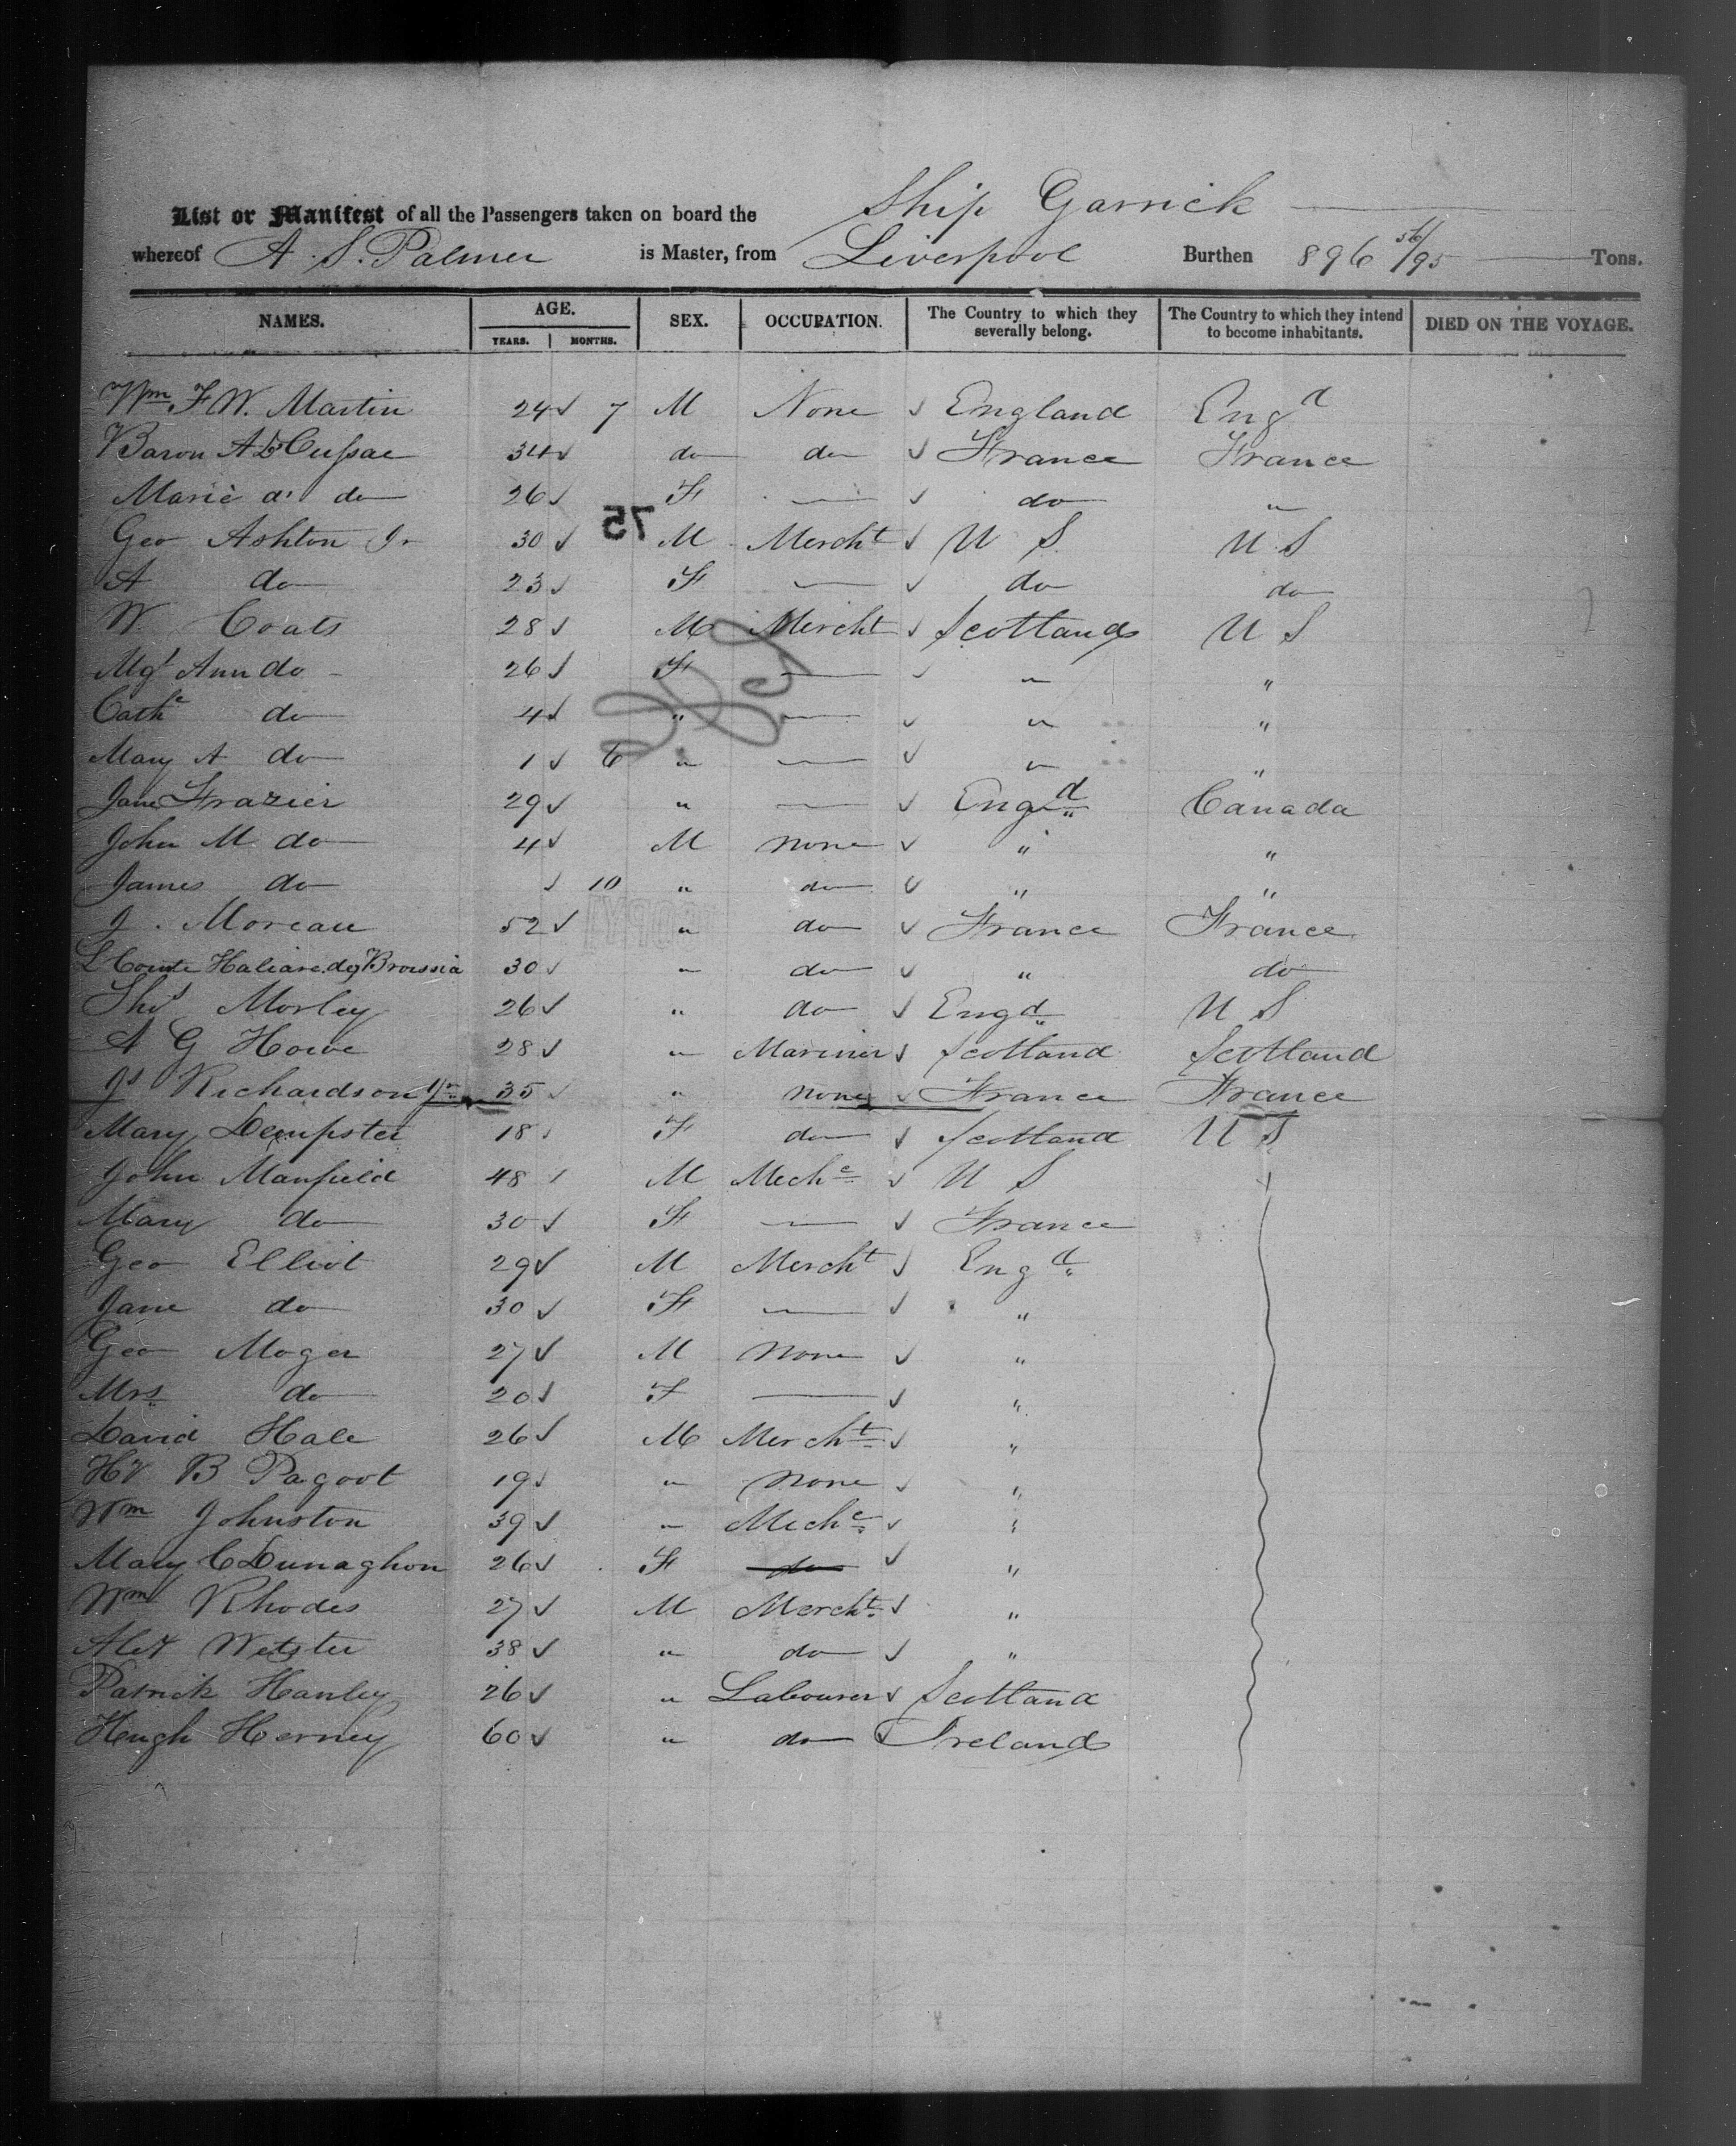 List or Manifest of all the Passengers taken on board the Ship Garrick
whereof A. S. Palmer is Master, from Liverpool Burthen 896 56/95 Tons.
NAMES. AGE. YEARS. MONTHS. SEX. OCCUPATION. The Country to which they severally belong. The Country to which they intend to become inhabitants. DIED ON THE VOYAGE.
Wm F W. Martin 24 ✓ 7 M None ✓ England Engd
Baron A De Cussac 34 ✓ do do ✓ France France
Marie do 26 ✓ F — ✓ do "
75
Geo Ashton Jr 30 ✓ M Mercht ✓ U S U S
A do 23 ✓ F — ✓ do do
W. Coats 28 ✓ M Mercht ✓ Scotland U S
Mgt Ann do 26 ✓ F — ✓ " "
Cathe do 4 ✓ " — ✓ " "
Mary A do 1 ✓ 6 " — ✓ " "
Jane Frazier 29 ✓ " — ✓ Engd Canada
John M do 4 ✓ M none ✓ " "
James do ✓ 10 " do ✓ " "
J. Moreau 52 ✓ " do ✓ France France
L Comte de Broissia 30 ✓ " do ✓ " do
Thos Morley 26 ✓ " do ✓ Engd U S
A G Howe 28 ✓ " Mariner ✓ Scotland Scotland
Js Richardson Jr 35 ✓ " none ✓ France France
Mary Dempster 18 ✓ F do ✓ Scotland U S
John Manfield 48 ✓ M Meche ✓ U S
Mary do 30 ✓ F — ✓ France
Geo Elliot 29 ✓ M Mercht ✓ Engd
Jane do 30 ✓ F — ✓ "
Geo Moger 27 ✓ M None ✓ "
Mrs do 20 ✓ F — ✓ "
David Hale 26 ✓ M Mercht ✓ "
Hy B Pagoot 19 ✓ " none ✓ "
Wm Johnston 39 ✓ " Meche ✓ "
Mary C Dunaghon 26 ✓ F do ✓ "
Wm Rhodes 27 ✓ M Mercht ✓ "
Alex Webster 38 ✓ " do ✓ "
Patrick Hanley 26 ✓ " Labourer ✓ Scotland
Hugh Herney 60 ✓ " do ✓ Ireland